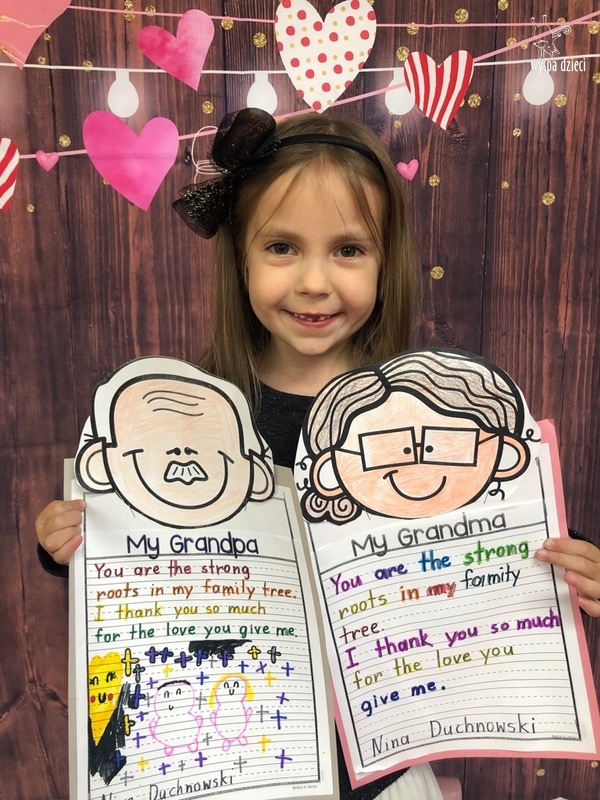 wyspa dzieci
My Grandpa
You are the strong
roots in my family tree.
I thank you so much
for the love you give me.
Nina Duchnowski
My Grandma
You are the strong
roots in my fomity
tree.
I thank you so much
for the love you
give me.
Nina Duchnowski